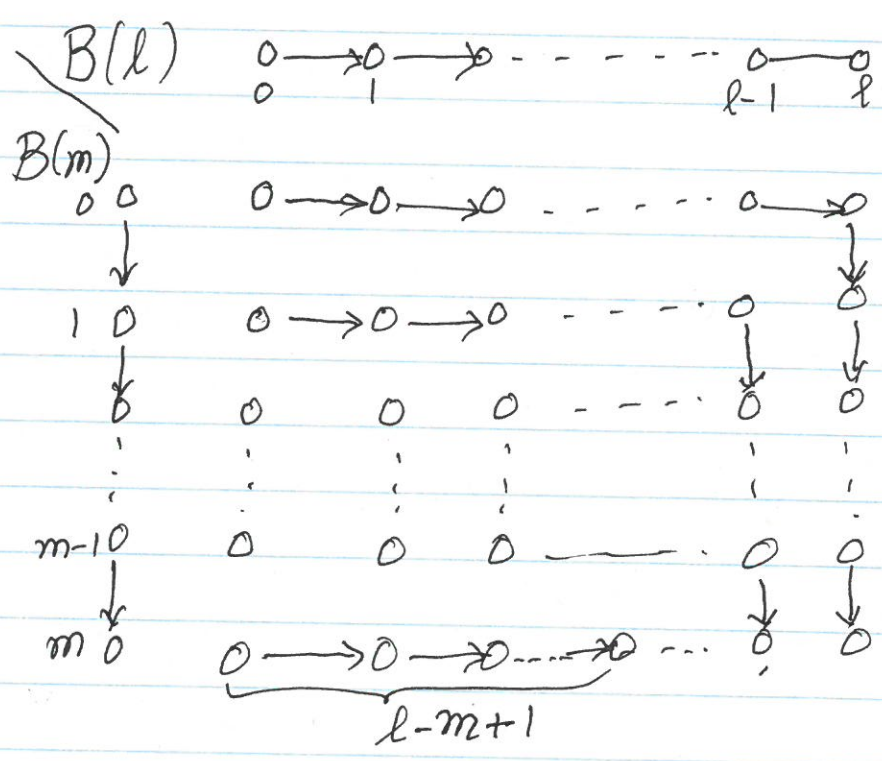 B(l)
0 1 l-1 l
B(m)
0
1
m-1
m
l-m+1